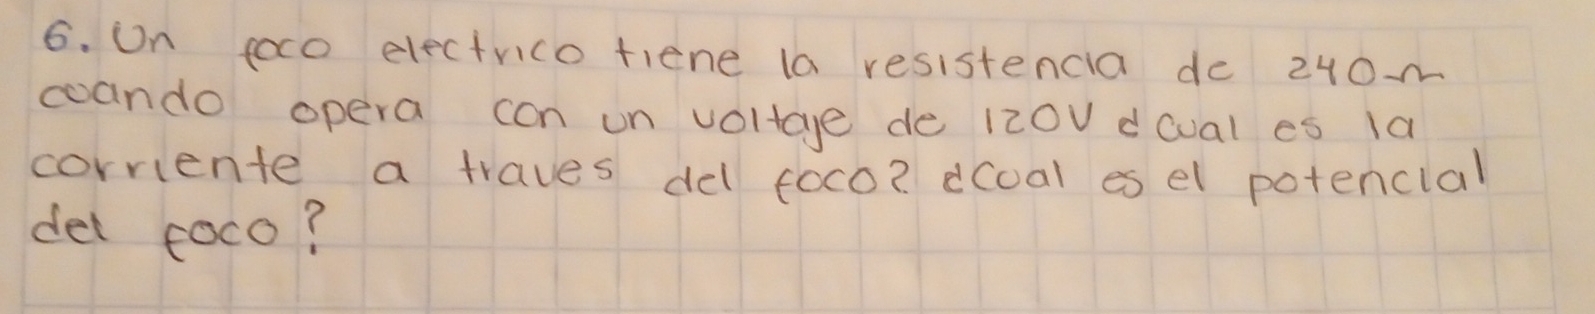 6. Un foco electrico tiene la resistencia de 240Ω
cuando opera con un voltaje de 120V ¿cual es la
corriente a traves del foco? ¿cual es el potencial
del foco?